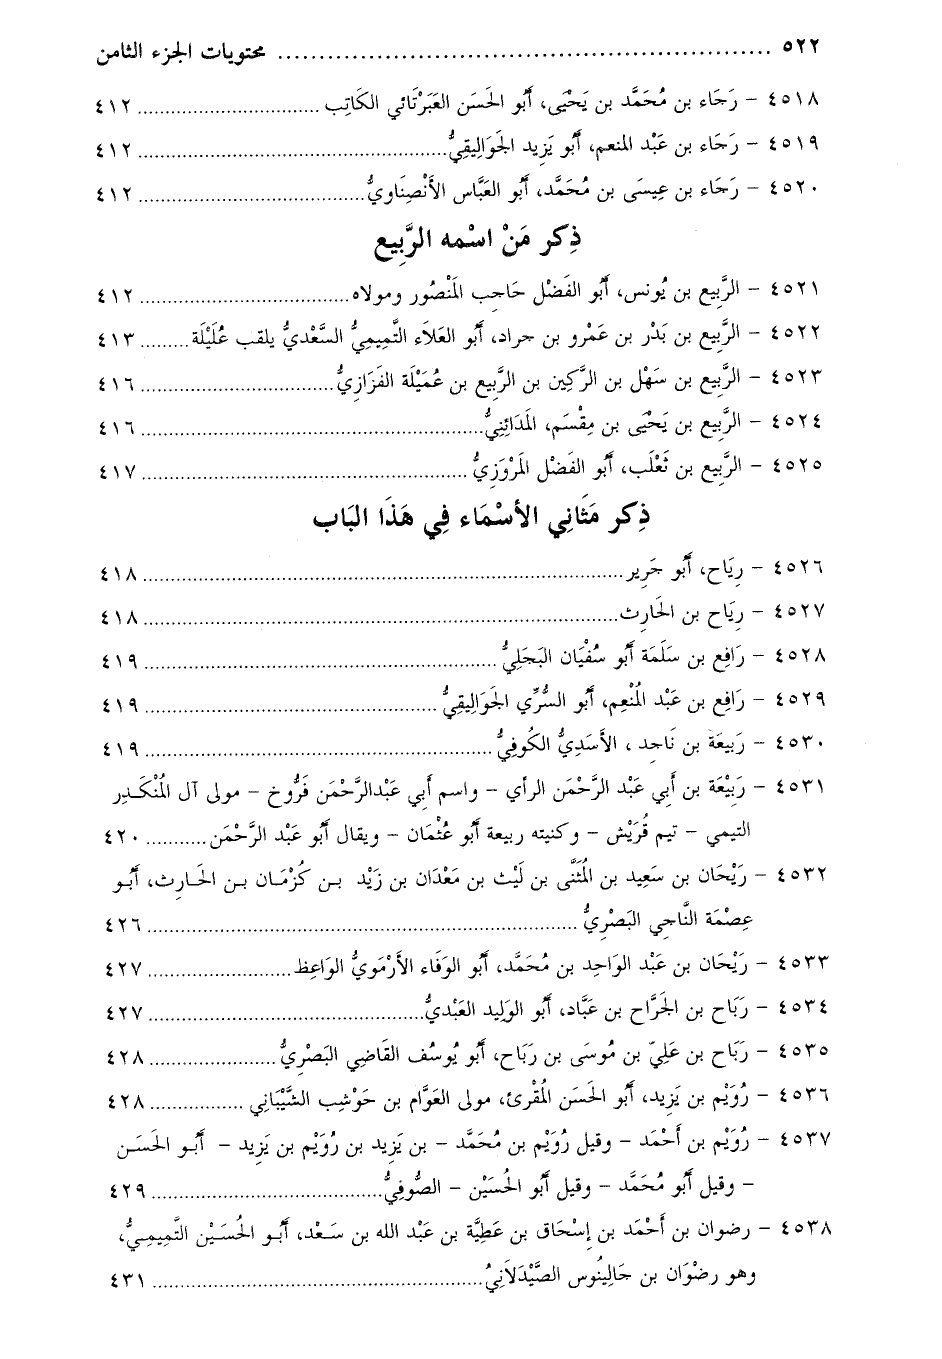 ٥٢٢ ........ محتويات الجزء الثامن
٤٥١٨ - رَجَاء بن مُحَمَّد بن يَحْيَى، أَبُو الحَسَن العَبَرْتَائي الكَاتِب ........ ٤١٢
٤٥١٩ - رَجَاء بن عَبْد المنعم، أَبُو يَزِيد الجَوَالِيقِيُّ ........ ٤١٢
٤٥٢٠ - رَجَاء بن عِيسَى بن مُحَمَّد، أَبُو العَبَّاس الأَنْصِنَاوِيُّ ........ ٤١٢
ذِكر مَنْ اسْمه الرَّبِيع
٤٥٢١ - الرَّبِيع بن يُونس، أَبُو الفَضْل حَاجِب المَنْصُور ومولاه ........ ٤١٢
٤٥٢٢ - الرَّبِيع بن بَدْر بن عَمْرو بن جراد، أَبُو العَلَاء التَّمِيمِيُّ السَّعْدِيُّ يلقب عُلَيْلَة ........ ٤١٣
٤٥٢٣ - الرَّبِيع بن سَهْل بن الرَّكِين بن الرَّبِيع بن عُمَيْلَة الفَزَارِيُّ ........ ٤١٦
٤٥٢٤ - الرَّبِيع بن يَحْيَى بن مِقْسَم، المَدَائِنِيُّ ........ ٤١٦
٤٥٢٥ - الرَّبِيع بن ثَعْلَب، أَبُو الفَضْل المَرْوَزِيُّ ........ ٤١٧
ذِكر مَثَانِي الأسْمَاء فِي هَذَا البَاب
٤٥٢٦ - رِيَاح، أَبُو جَرِير ........ ٤١٨
٤٥٢٧ - رِيَاح بن الحَارِث ........ ٤١٨
٤٥٢٨ - رَافِع بن سَلَمَة أَبُو سُفْيَان البَجَلِيُّ ........ ٤١٩
٤٥٢٩ - رَافِع بن عَبْد المُنْعِم، أَبُو السُّرِّي الجَوَالِيقِيُّ ........ ٤١٩
٤٥٣٠ - رَبِيعَة بن نَاجِد ، الأَسَدِيُّ الكُوفِيُّ ........ ٤١٩
٤٥٣١ - رَبِيْعَة بن أَبِي عَبْد الرَّحْمَن الرأي - واسم أَبِي عَبْدالرَّحْمَن فَرُّوخ - مولى آل المُنْكَدِر
التيمي - تيم قُرَيْش - وكنيته ربيعة أَبُو عُثْمَان - ويقال أَبُو عَبْد الرَّحْمَن ........ ٤٢٠
٤٥٣٢ - رَيْحَان بن سَعِيد بن المُثَنَّى بن لَيْث بن مَعْدَان بن زَيْد بن كُرْمَان بن الحَارِث، أَبُو
عِصْمَة النَّاجِي البَصْرِيُّ ........ ٤٢٦
٤٥٣٣ - رَيْحَان بن عَبْد الوَاحِد بن مُحَمَّد، أَبُو الوَفَاء الأَرْمَوِيُّ الوَاعِظ ........ ٤٢٧
٤٥٣٤ - رَبَاح بن الجَرَّاح بن عَبَّاد، أَبُو الوَلِيد العَبْدِيُّ ........ ٤٢٧
٤٥٣٥ - رَبَاح بن عَلِيّ بن مُوسَى بن رَبَاح، أَبُو يُوسُف القَاضِي البَصْرِيُّ ........ ٤٢٨
٤٥٣٦ - رُوَيْم بن يَزِيد، أَبُو الحَسَن المُقْرِئ، مولى العَوَّام بن حَوْشَب الشَّيْبَانِي ........ ٤٢٨
٤٥٣٧ - رُوَيْم بن أَحْمَد - وقيل رُوَيْم بن مُحَمَّد - بن يَزِيد بن رُوَيْم بن يَزِيد - أَبُو الحَسَن
- وقيل أَبُو مُحَمَّد - وقيل أَبُو الحُسَيْن - الصُّوفِيُّ ........ ٤٢٩
٤٥٣٨ - رضوان بن أَحْمَد بن إِسْحَاق بن عَطِيَّة بن عَبْد الله بن سَعْد، أَبُو الحُسَيْن التَّمِيمِيُّ،
وهو رضْوَان بن جَالِينُوس الصَّيْدَلَانِيُّ ........ ٤٣١